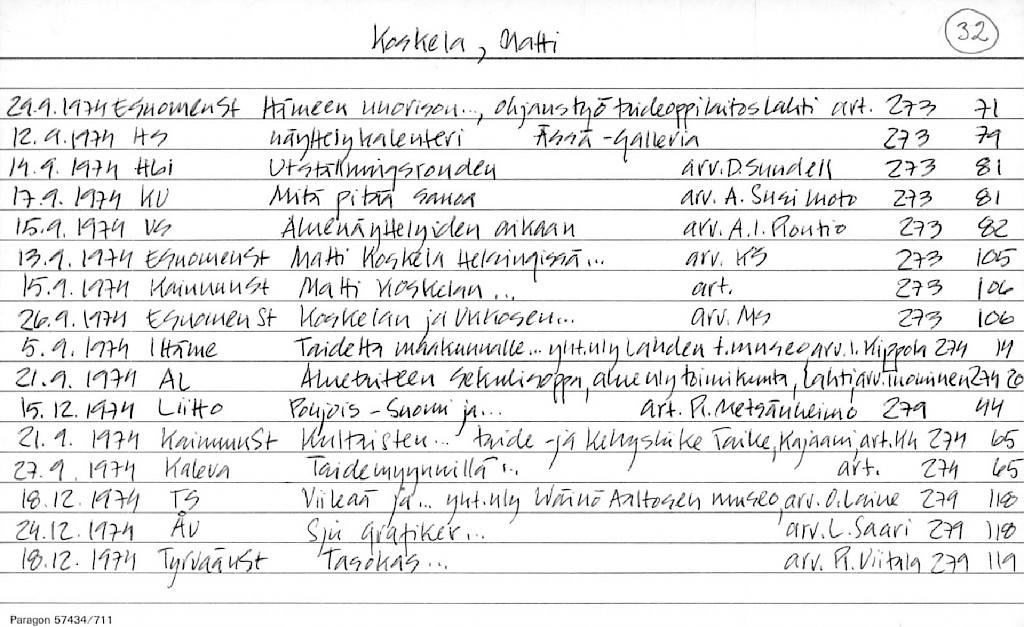 Koskela, Matti
32
29.9.1974 ESuomenSt Hämeen nuorison..., ohjaustyö taideoppilaitos Lahti art. 273 71
12.9.1974 HS näyttelykalenteri Ässä-Galleria 273 79
14.9.1974 Hbl Utställningsronden arv. D. Sundell 273 81
17.9.1974 KU Mitä pitää sanoa arv. A. Susiluoto 273 81
15.9.1974 VS Aluenäyttelyiden aikaan arv. A.I. Routio 273 82
13.9.1974 ESuomenSt Matti Koskela Helsingissä... arv. KS 273 105
15.9.1974 KainuunSt Matti Koskelan... art. 273 106
26.9.1974 ESuomenSt Koskelan ja Ukkosen... arv. MS 273 106
5.9.1974 IHäme Taidetta maakunnalle... yht.näy Lahden t.museo arv. I. Kippola 274 14
21.9.1974 AL Aluetaiteen sekulisoppa, aluenäytoimikunta, Lahti, arv. Inominen 274 20
15.12.1974 Liitto Pohjois-Suomi ja... art. R. Metsänheimo 279 44
21.9.1974 KainuunSt Kultaisten... taide- ja kehysliike Taike, Kajaani, art. KH 274 65
27.9.1974 Kaleva Taidemyynnillä... art. 274 65
18.12.1974 TS Vilkeää ja... yht.näy Wäinö Aaltosen museo, arv. O. Laine 279 118
24.12.1974 ÅU Sju grafiker... arv. L. Saari 279 118
18.12.1974 TyrväänSt Tasokas... arv. R. Viitala 279 119
Paragon 57434/711